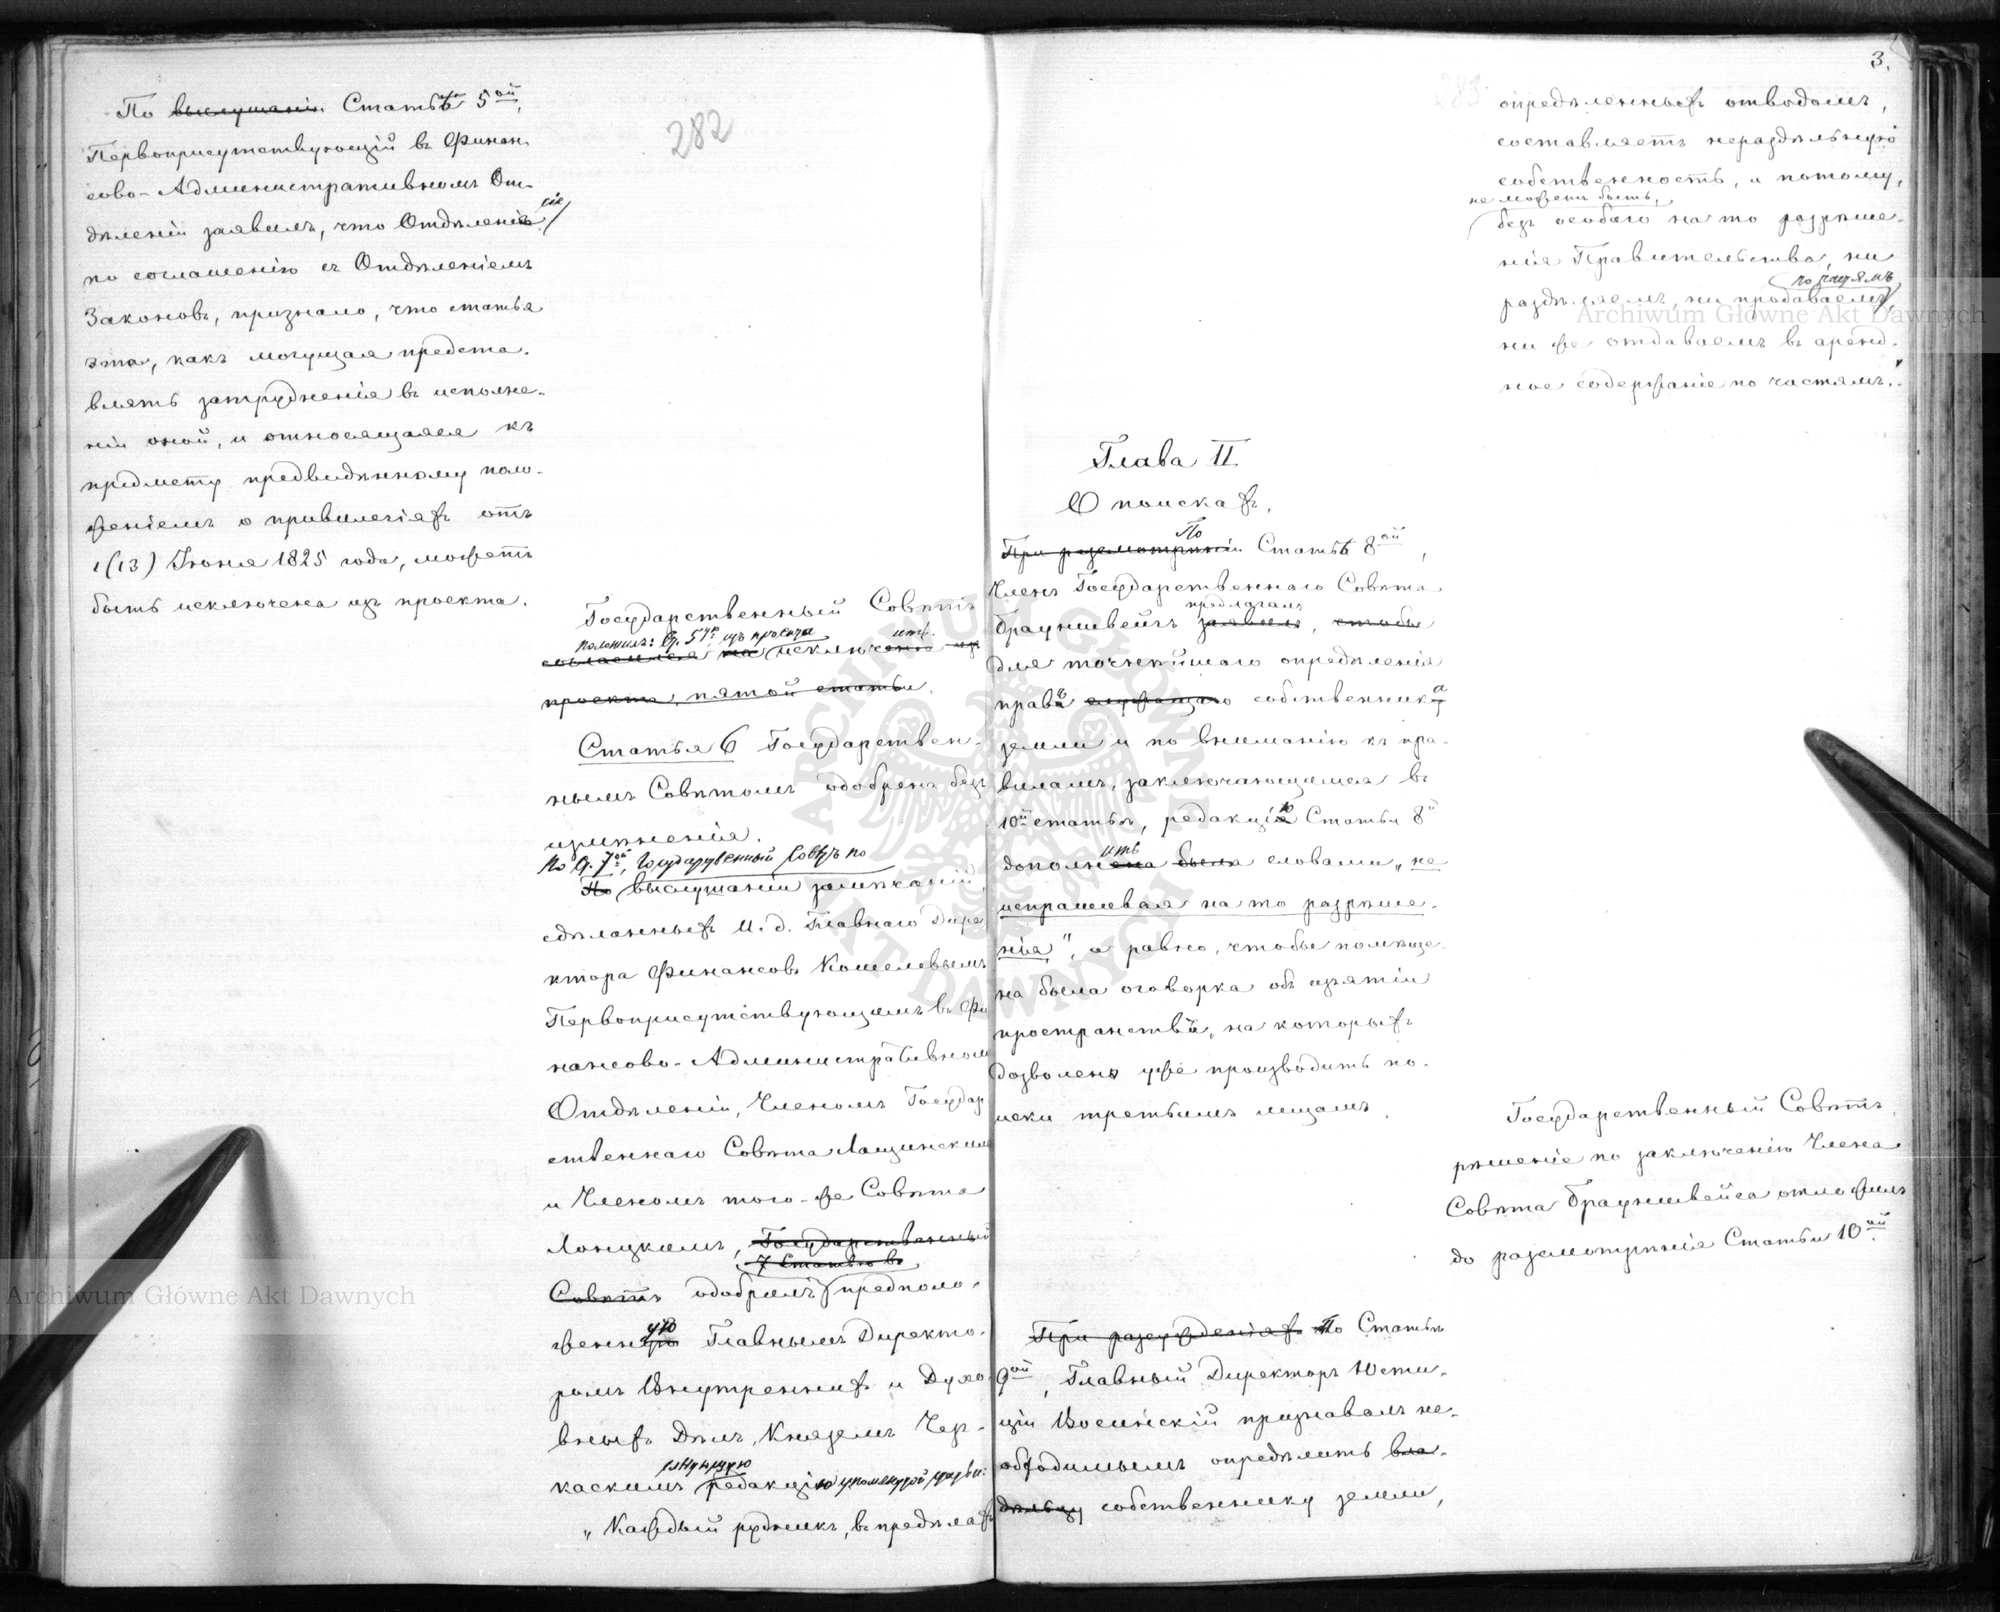 282
По выслушаніи Статьѣ 5ой,
Первоприсутствующій въ Финан-
сово-Административномъ От-
дѣленіи заявилъ, что Отдѣленіе сіе
по соглашенію съ Отдѣленіемъ
Законовъ, признало, что статья
эта, какъ могущая предста-
влять затрудненія въ исполне-
ніи оной, и относящаяся къ
предмету предвидѣнному поло-
женіемъ о привилегіяхъ отъ
1(13) Іюня 1825 года, можетъ
быть исключена изъ проекта.
Государственный Совѣтъ
положилъ: Ст. 5ую изъ проекта
исключить.
согласился на исключеніе изъ
проекта, пятой статьи.
Статья 6 Государствен-
нымъ Совѣтомъ одобрена безъ
измѣненія.
По Ст. 7ой, Государственный Совѣтъ по
По выслушаніи замѣчаній,
сдѣланныхъ И. д. Главнаго Дире
ктора Финансовъ Кошелевымъ
Первоприсутствующимъ въ Фи
нансово-Административном
Отдѣленіи, Членомъ Государ
ственнаго Совѣта Лащинским
и Членомъ того-же Совѣта
Лонцкимъ, Государственный
7 Статью въ
Совѣтъ одобрилъ предполо-
женную Главнымъ Директо-
ромъ Внутреннихъ и Духо
вныхъ Дѣлъ, Княземъ Чер-
слѣдующую
каскимъ редакцію упомянутой статьи:
„Каждый рудникъ, въ предѣлахъ
3.
283
опредѣленныхъ отводомъ,
составляетъ нераздѣльную
собственность, и потому,
не можетъ быть,
безъ особаго на то разрѣше-
нія Правительства, ни
по частямъ
раздѣляемъ, ни продаваемъ,
ни же отдаваемъ въ аренд-
ное содержаніе по частямъ.
Глава II.
О поискахъ.
По
При разсмотрѣніи Статьѣ 8ой,
Членъ Государственнаго Совѣта
предлагалъ
Брауншвейгъ заявилъ, чтобы
для точнѣйшаго опредѣленія
правъ служащаго собственника
земли и по вниманію къ пра-
виламъ, заключающимся въ
10ой статьѣ, редакцію Статьи 8й
дополнить была словами „не
испрашивая на то разрѣше-
нія", а равно, чтобы помѣще-
на была оговорка объ изъятіи
пространствъ, на которыхъ
дозволено уже производить по-
иски третьимъ лицамъ.
Государственный Совѣтъ,
рѣшеніе по заключенію Члена
Совѣта Брауншвейга отложилъ
до разсмотрѣнія Статьи 10ой
При разсужденіяхъ По Статьѣ
9ой, Главный Директоръ Юсти-
ціи Воинскій признавалъ не-
обходимымъ опредѣлить вла-
дѣльцу собственнику земли,
Archiwum Główne Akt Dawnych
Archiwum Główne Akt Dawnych
ARCHIWUM GŁÓWNE AKT DAWNYCH